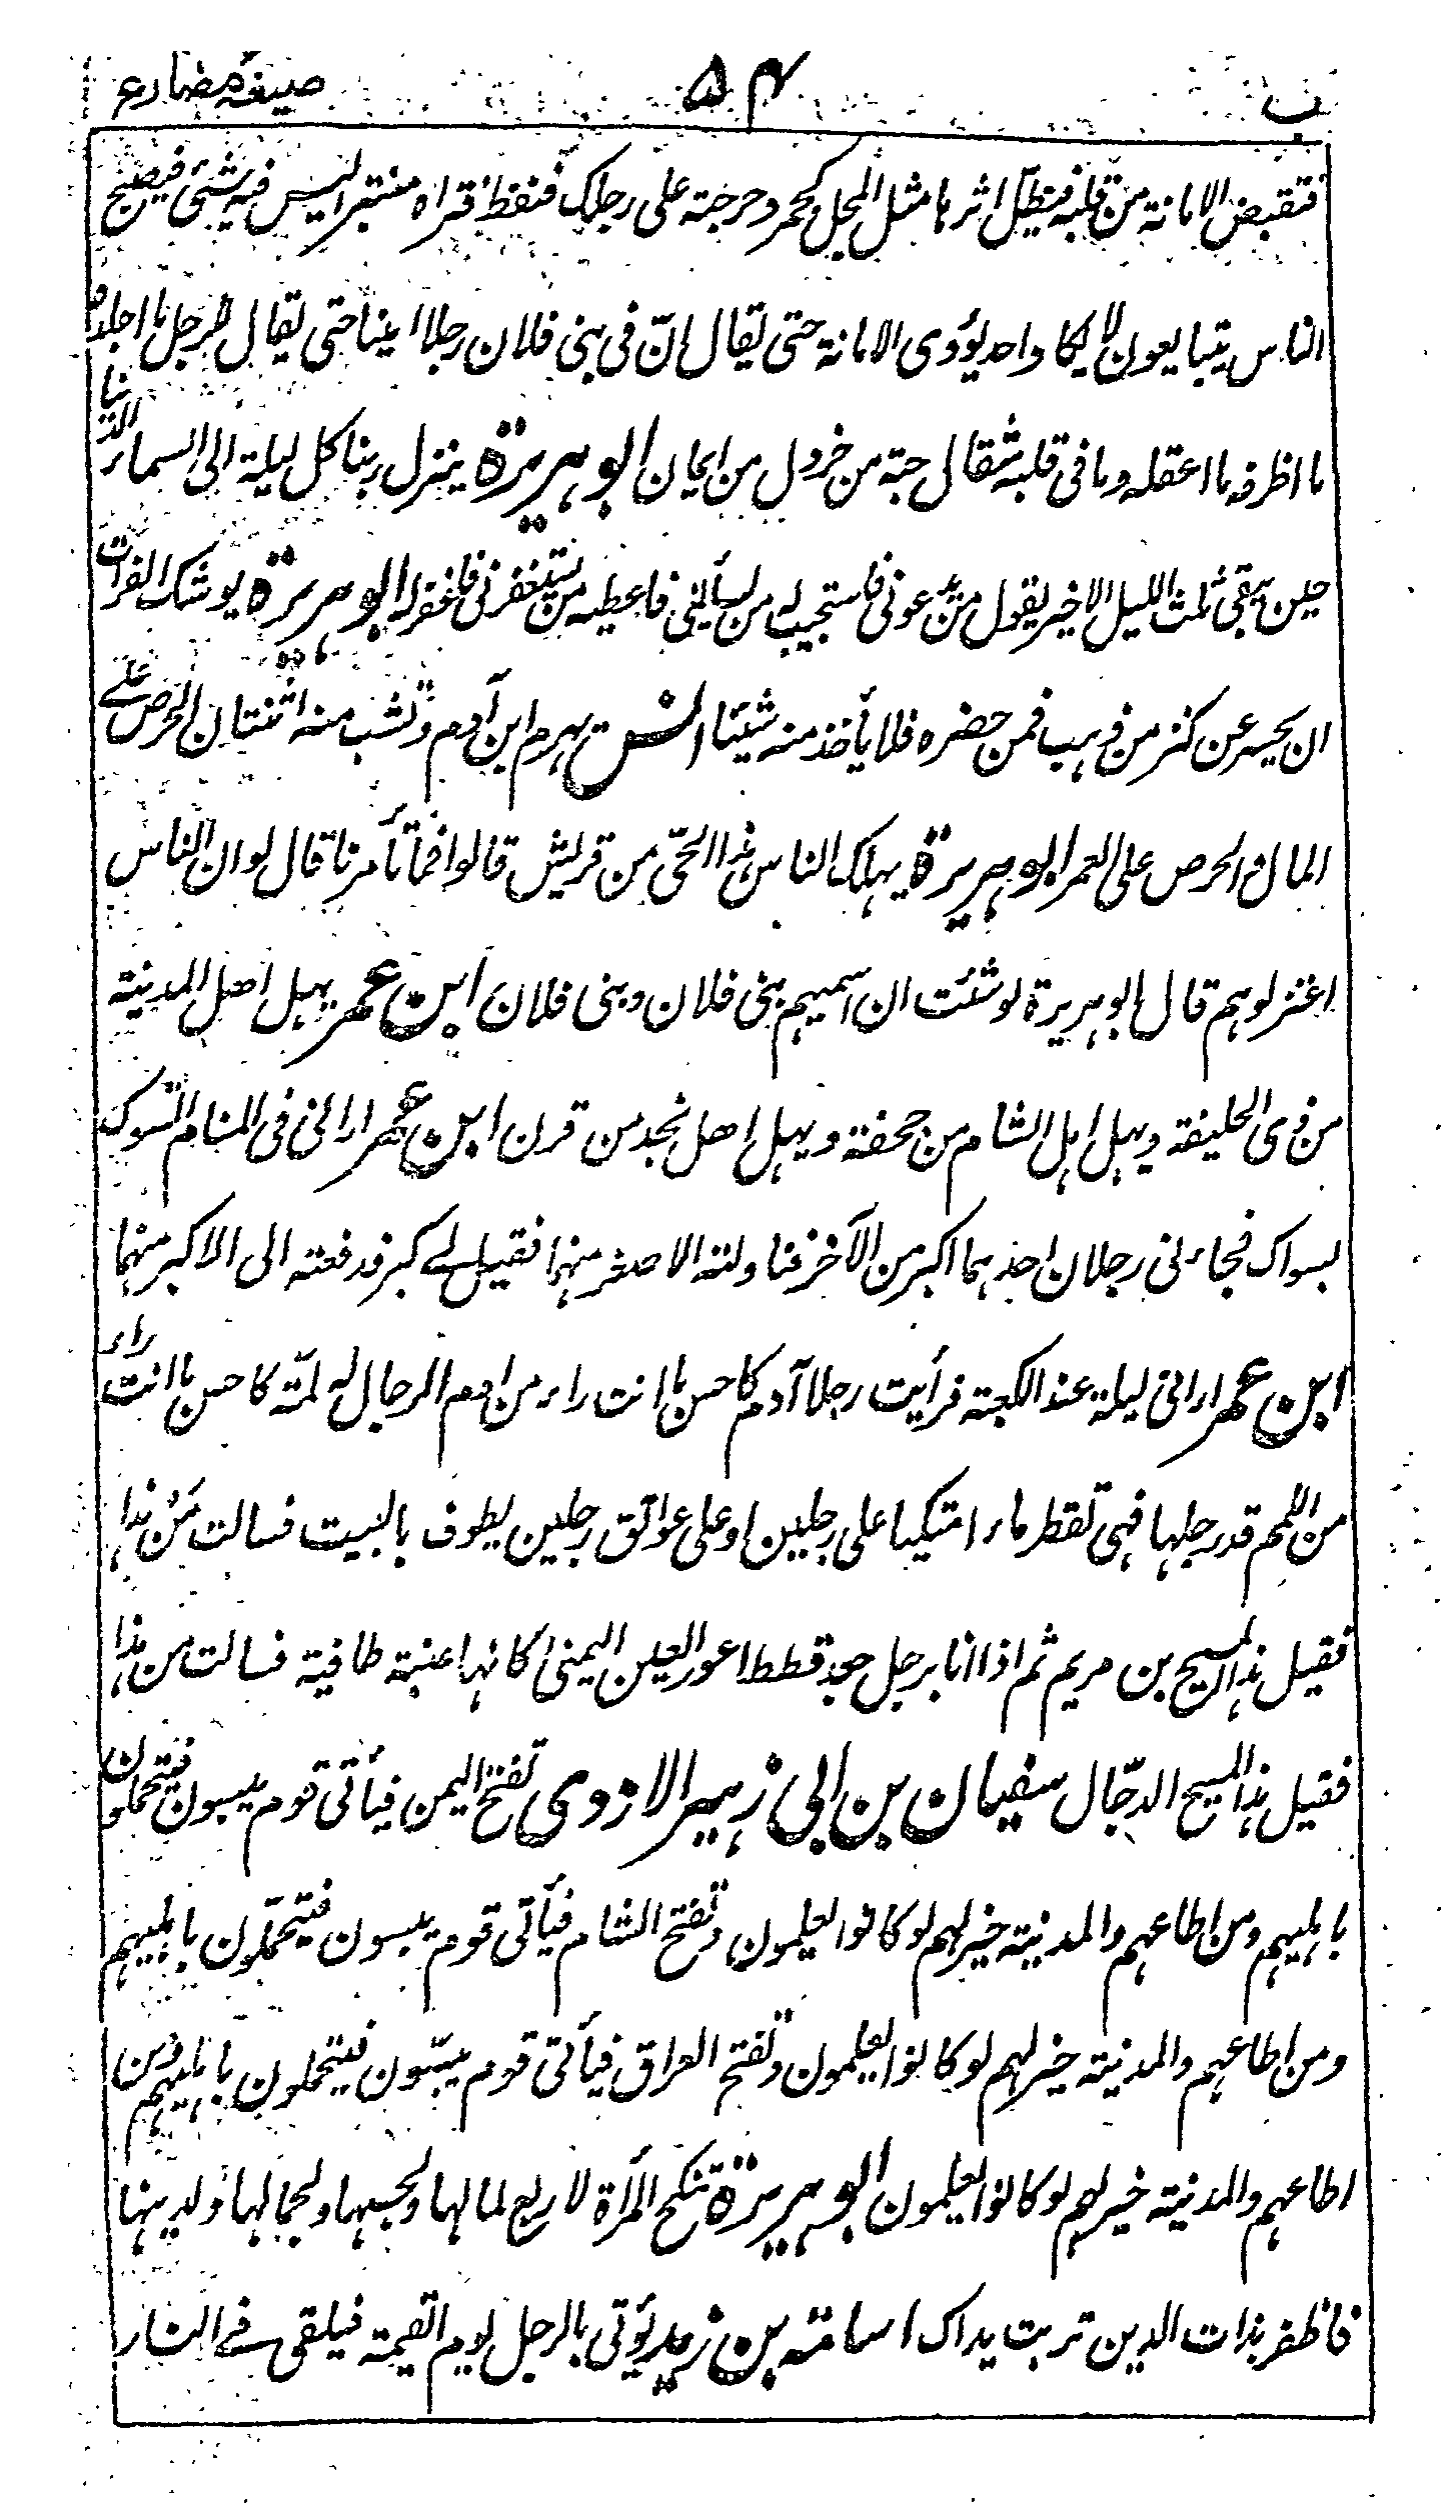 ب ۵۴ صیغه مضارع
فتقبض الامانة من قلبه فیظل اثرها مثل المجل کجمر دحرجته علی رجلک فنفط فتراه منتبرا لیس فیه شئ فیصبح
الناس یتبایعون لا یکاد احد یؤدی الامانة حتی یقال ان فی بنی فلان رجلا امینا حتی یقال للرجل ما اجلده
ما اظرفه ما اعقله وما فی قلبه مثقال حبة من خردل من ایمان ابو هریرة ینزل ربنا کل لیلة الی السماء الدنیا
حین یبقی ثلث اللیل الاخیر یقول من یدعونی فاستجیب له من یسألنی فاعطیه من یستغفرنی فاغفر له ابو هریرة یوشک الفرات
ان یحسر عن کنز من ذهب فمن حضره فلا یأخذ منه شیئا انس یهرم ابن آدم وتشب منه اثنتان الحرص علی
المال والحرص علی العمر ابو هریرة یهلک الناس هذا الحیّ من قریش قالوا فما تأمرنا قال لو ان الناس
اعتزلوهم قال ابو هریرة لو شئت ان اسمیهم بنی فلان وبنی فلان ابن عمر یهل اهل المدینة
من ذی الحلیفة ویهل اهل الشام من جحفة ویهل اهل نجد من قرن ابن عمر ارانی فی المنام اتسوک
بسواک فجاءنی رجلان احدهما اکبر من الآخر فناولته الاصغر منهما فقیل لے کبر فدفعته الی الاکبر منهما
ابن عمر ارانی لیلة عند الکعبة فرأیت رجلا آدم کاحسن ما انت راء من ادم الرجال له لمّة کاحسن ما انت راء
من اللمم قد رجلها فهی تقطر ماء متکیا علی رجلین او علی عواتق رجلین یطوف بالبیت فسالت من هذا
فقیل هذا المسیح بن مریم ثم اذا انا برجل جعد قطط اعور العین الیمنی کانها عنبة طافیة فسالت من هذا
فقیل هذا المسیح الدجّال سفیان بن ابی زهیر الازدی تفتح الیمن فیأتی قوم یبسون فیتحملون
باهلیهم ومن اطاعهم والمدینة خیر لهم لو کانوا یعلمون وتفتح الشام فیأتی قوم یبسون فیتحمّلون باهلیهم
ومن اطاعهم والمدینة خیر لهم لو کانوا یعلمون وتفتح العراق فیأتی قوم یبسّون فیتحملون باهلیهم ومن
اطاعهم والمدینة خیر لهم لو کانوا یعلمون ابو هریرة تنکح المرأة لاربع لمالها ولحسبها ولجمالها ولدینها
فاظفر بذات الدین تربت یداک اسامة بن زید یؤتی بالرجل یوم القیمة فیلقی فے النار